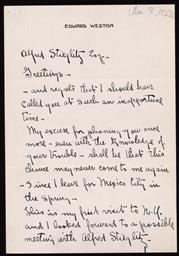 EDWARD WESTON
Alfred Stieglitz Esq -
Greetings -
- and regrets that I should have
called you at such an inopportune
time -
My excuse for phoning you once
more - even with the knowledge of
your trouble - shall be that this
chance may never come to me again
- since I leave for Mexico City in
the Spring -
This is my first visit to N.Y.
and I looked forward to a possible
meeting with Alfred Stieglitz -